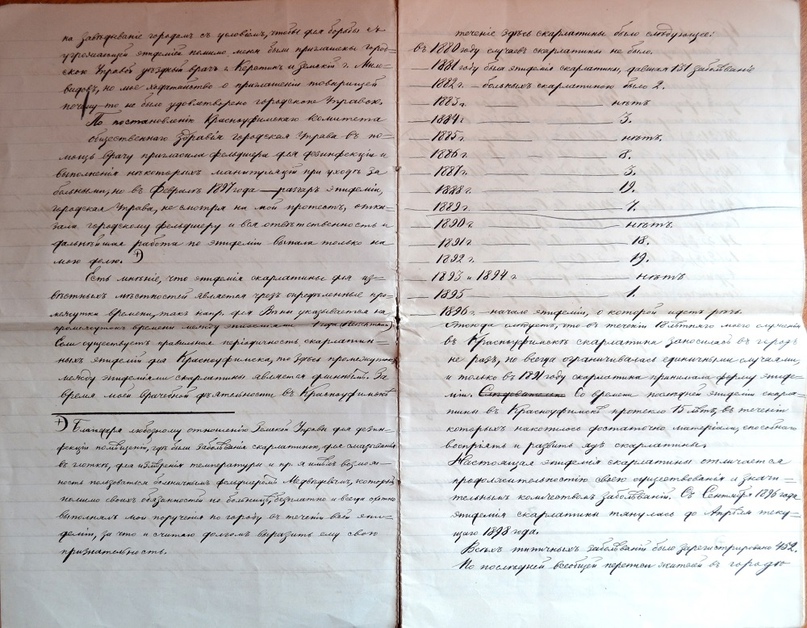 на завѣдываніе городомъ съ условіемъ, чтобы для борьбы съ
угрожающей эпидеміи помимо меня были приглашены Город-
ской Управой уѣздный врачъ г. Коростинъ и земскій г. Мил-
видовъ, но мое ходатайство о приглашеніи товарищей
почему-то не было удовлетворено городской Управой.
По постановленію Красноуфимскаго комитета
общественнаго здравія городская Управа въ по-
мощь врачу пригласила фельдшера для дезинфекціи и
выполненія нѣкоторыхъ манипуляцій при уходѣ за
больными, но въ Февралѣ 1897 года — разгаръ эпидеміи,
городская Управа, не смотря на мой протестъ, отка-
зала городскому фельдшеру и вся отвѣтственность и
дальнѣйшая работа по эпидеміи выпала только на
мою долю. +)
Есть мнѣніе, что эпидемія скарлатины для из-
вѣстныхъ мѣстностей является чрезъ опредѣленные про-
межутки времени, такъ напр. для Вѣны указывается на
промежутокъ времени между эпидеміями
Если существуетъ правильная періодичность скарлатин-
ныхъ эпидемій для Красноуфимска, то здѣсь промежутокъ
между эпидеміями скарлатины является длиннымъ. За
время моей врачебной дѣятельности въ Красноуфимскѣ
+) Благодаря любезному отношенію Земской Управы для дезин-
фекціи помѣщеній, гдѣ были заболѣванія скарлатиной, для смазыванія
въ глоткѣ, для измѣренія температуры и пр. я имѣлъ возмож-
ность пользоваться больничнымъ фельдшеромъ Медвѣдевымъ, который
помимо своихъ обязанностей по больницѣ, безплатно и всегда охотно
выполнялъ мои порученія по городу въ теченіи всей эпи-
деміи, за что и считаю долгомъ выразить ему свою
признательность.
теченіе здѣсь скарлатины было слѣдующее:
въ 1880 году случаевъ скарлатины не было.
1881 году была эпидемія скарлатины, давшая 131 заболѣваніе
1882 г. — больныхъ скарлатиною было 2.
1883 г. нѣтъ
1884 г. 3.
1885 г. нѣтъ.
1886 г. 8.
1887 г. 3.
1888 г. 12.
1889 г. 7.
1890 г. нѣтъ.
1891 г. 18.
1892 г. 19.
1893 и 1894 г. нѣтъ
1895 1.
1896 г. — начало эпидеміи, о которой идетъ рѣчь.
Отсюда слѣдуетъ, что въ теченіи 18 лѣтняго моего служенія
въ Красноуфимскѣ скарлатина заносилась въ городъ
не разъ, но всегда ограничивалась единичными случаями
и только въ 1891 году скарлатина принимала форму эпиде-
міи. Со времени послѣдней эпидеміи скарла-
тины въ Красноуфимскѣ протекло 15 лѣтъ, въ теченіи
которыхъ накопилось достаточно матеріала, способнаго
воспріять и развить ядъ скарлатины.
Настоящая эпидемія скарлатины отличается
продолжительностію своего существованія и значи-
тельнымъ количествомъ заболѣваній. Съ Сентября 1896 года
эпидемія скарлатины тянулась до Апрѣля теку-
щаго 1898 года.
Всѣхъ типичныхъ заболѣваній было зарегистрировано 432.
По послѣдней всеобщей переписи жителей въ городѣ